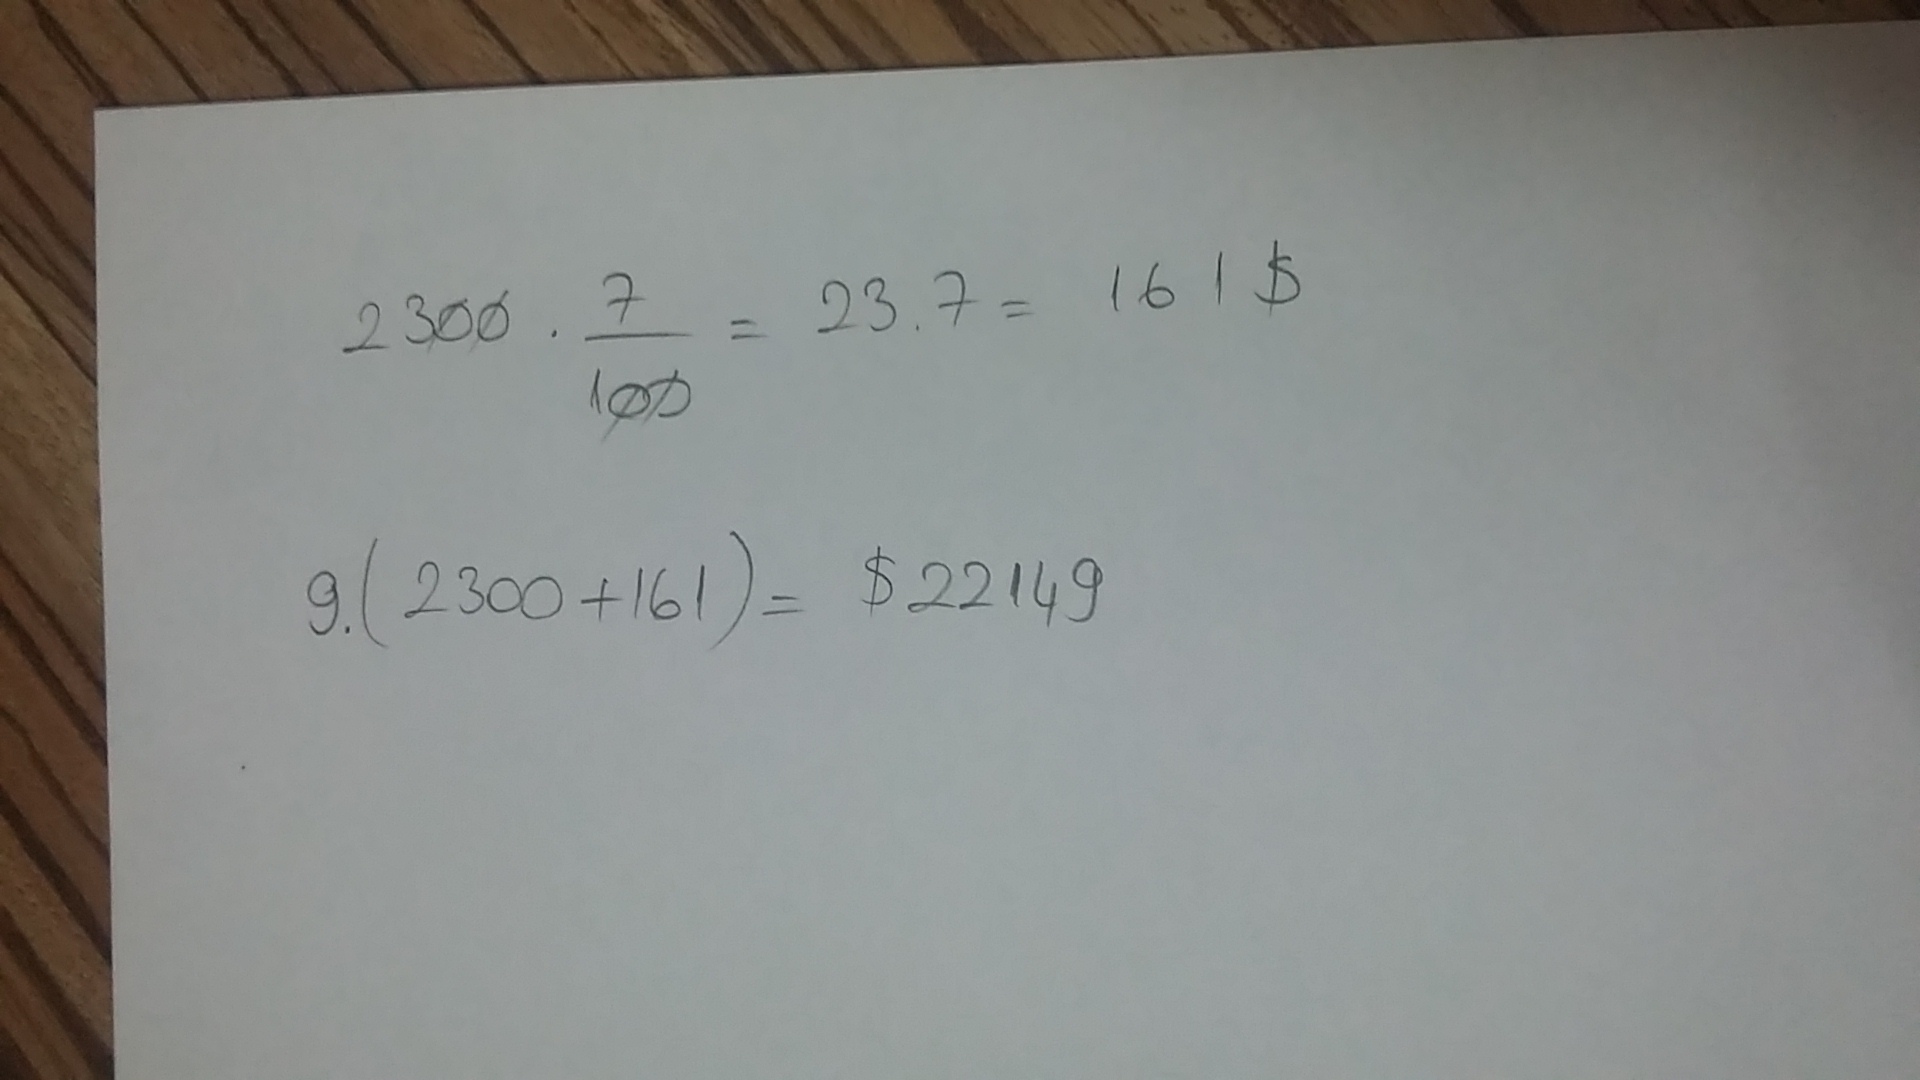 2300 . 7/100 = 23.7 = 161 $
9.(2300+161) = $22149